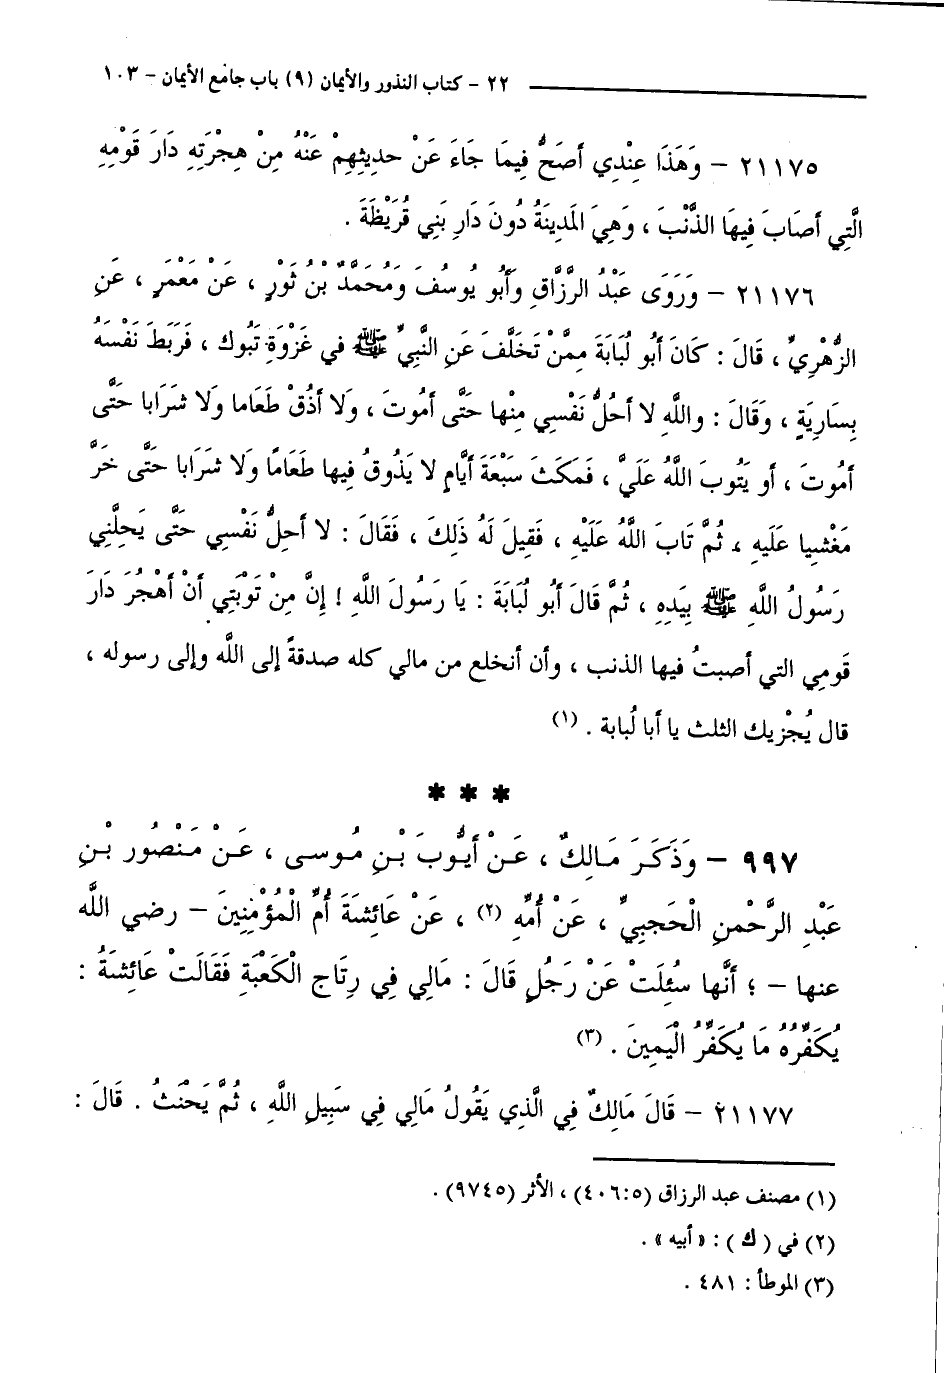 ٢٢ - كتاب النذور والأيمان (٩) باب جامع الأيمان - ١٠٣
٢١١٧٥ - وَهَذَا عِنْدِي أَصَحُّ فِيمَا جَاءَ عَنْ حديثِهِمْ عَنْهُ مِنْ هِجْرَتِهِ دَارَ قَوْمِهِ
الَّتِي أَصَابَ فِيهَا الذَّنْبَ ، وَهِيَ المَدِينَةُ دُونَ دَارِ بَنِي قُرَيْظَةَ .
٢١١٧٦ - وَرَوَى عَبْدُ الرَّزَّاقِ وَأَبُو يُوسُفَ وَمُحَمَّدٌ بْنُ ثَوْرٍ ، عَنْ مَعْمَرٍ ، عَنِ
الزُّهْرِيِّ ، قَالَ : كَانَ أَبُو لُبَابَةَ مِمَّنْ تَخَلَّفَ عَنِ النَّبِيِّ ﷺ في غَزْوَةِ تَبُوك ، فَرَبَطَ نَفْسَهُ
بِسَارِيَةٍ ، وَقَالَ : واللَّهِ لا أَحُلُّ نَفْسِي مِنْها حَتَّى أَمُوتَ ، وَلا أَذُقْ طَعَاما وَلا شَرَابا حَتَّى
أَمُوتَ ، أو يَتُوبَ اللَّهُ عَلَيَّ ، فَمَكَثَ سَبْعَةَ أيَّامٍ لا يَذُوقُ فِيها طَعَامًا وَلا شَرَابا حَتَّى خَرَّ
مَغْشيا عَلَيهِ ، ثُمَّ تَابَ اللَّهُ عَلَيْهِ ، فَقِيلَ لَهُ ذَلِكَ ، فَقَالَ : لا أحِلُّ نَفْسِي حَتَّى يَحِلَّنِي
رَسُولُ اللَّهِ ﷺ بِيَدِهِ ، ثُمَّ قَالَ أَبُو لُبَابَةَ : يَا رَسُولَ اللَّهِ ! إِنَّ مِنْ تَوْبَتِي أَنْ أَهْجُرَ دَارَ
قَومِي التي أصبتُ فيها الذنب ، وأن أنخلع من مالي كله صدقةً إلى اللَّه وإلى رسوله ،
قال يُجْزيك الثلث يا أبا لُبابة . (١)
* * *
٩٩٧ - وَذَكَرَ مَالِكٌ ، عَنْ أَيُّوبَ بْنِ مُوسى ، عَنْ مَنْصُورِ بْنِ
عَبْدِ الرَّحْمنِ الْحَجبِيِّ ، عَنْ أُمِّهِ (٢) ، عَنْ عَائِشَةَ أُمِّ الْمُؤْمِنِينَ - رضي اللَّه
عنها - ؛ أَنَّها سُئِلَتْ عَنْ رَجُلٍ قَالَ : مَالِي فِي رِتَاجِ الْكَعْبَةِ فَقَالَتْ عَائِشَةُ :
يُكَفِّرُهُ مَا يُكَفِّرُ الْيَمِينَ . (٣)
٢١١٧٧ - قَالَ مَالِكٌ فِي الَّذِي يَقُولُ مَالِي فِي سَبِيلِ اللَّهِ ، ثُمَّ يَحْنَثُ . قَالَ :
(١) مصنف عبد الرزاق (٤٠٦:٥) ، الأثر (٩٧٤٥) .
(٢) في ( ك ) : « أبيه » .
(٣) الموطأ : ٤٨١ .